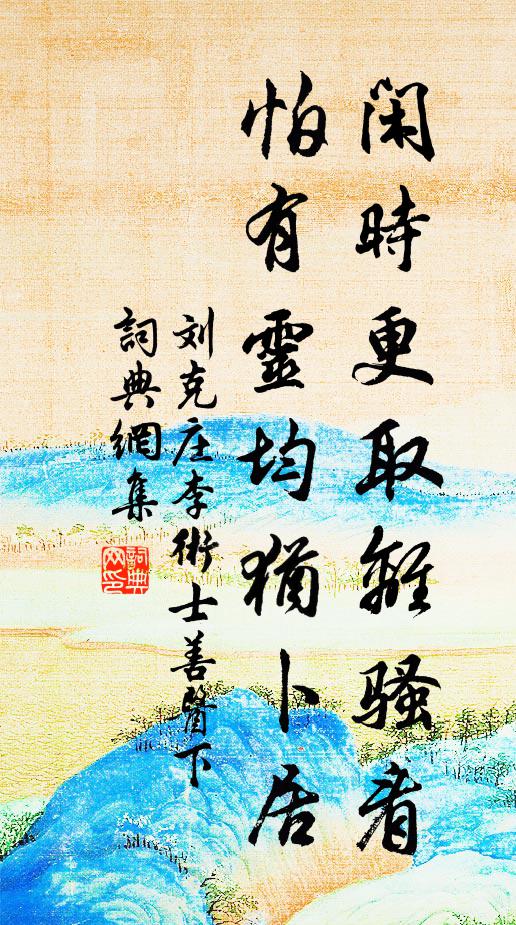 闲時更取離騷看
怕有靈均猶卜居
刘克庄李術士善醫下
詞典網集
詞典网印